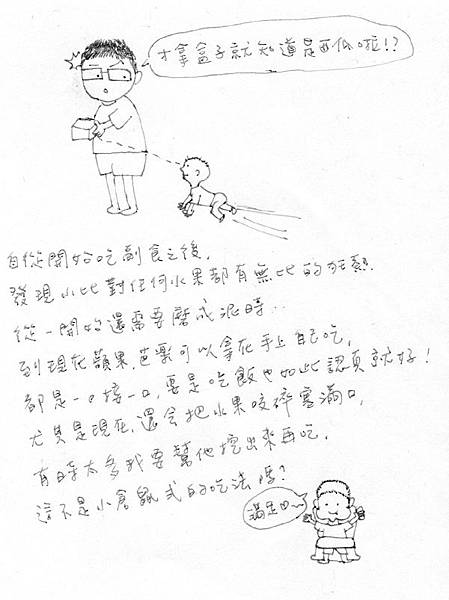 才拿盒子就知道是西瓜啦!?
自從開始吃副食之後,
發現小比對任何水果都有無比的狂熱.
從一開始還需要磨成泥時..
到現在蘋果.芭樂可以拿在手上自己吃,
都是一口接一口,要是吃飯也如此認真就好!
尤其是現在,還會把水果咬碎塞滿口,
有時太多我要幫他挖出來再吃,
這不是小倉鼠式的吃法嗎?
滿足